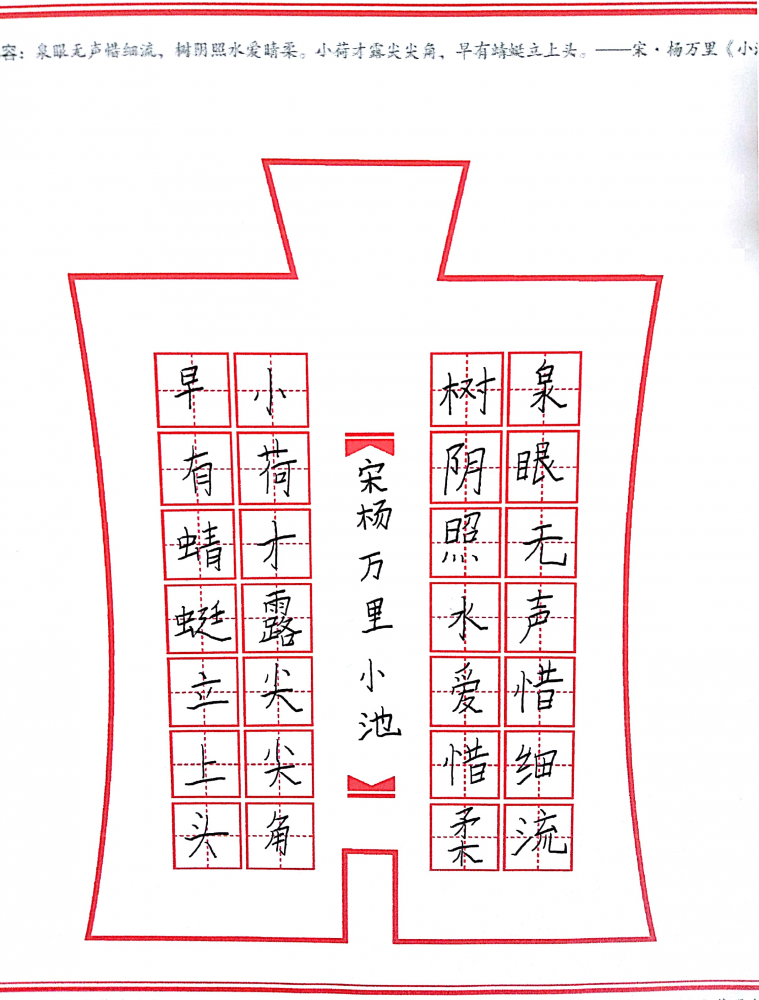 容：泉眼无声惜细流，树阴照水爱晴柔。小荷才露尖尖角，早有蜻蜓立上头。——宋·杨万里《小
泉眼无声惜细流
树阴照水爱惜柔
宋杨万里小池
小荷才露尖尖角
早有蜻蜓立上头